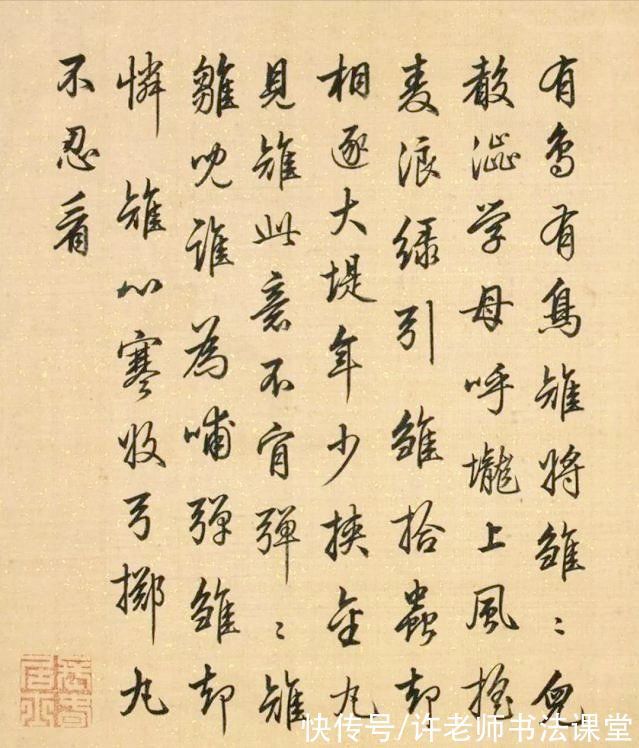 有鳥有鳥雉將雛〻兒
澁学母呼壠上風搖
麦浪綠引雛拾蟲却
相逐大堤年少挾金丸
見雉此意不肯彈〻雉
雛兒誰為哺彈雛却
憐雉心寒收弓擲丸
不忍看
快传号/许老师书法课堂